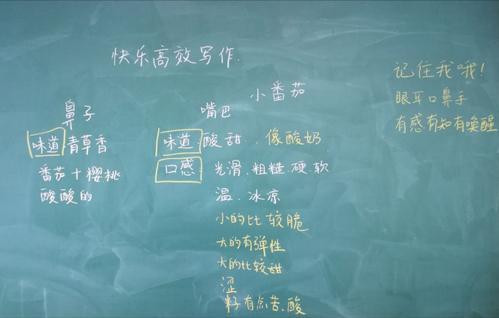 快乐高效写作.
小番茄
鼻子
味道 青草香
番茄+樱桃
酸酸的
嘴巴
味道 酸甜.像酸奶
口感 光滑.粗糙.硬软
温.冰凉
小的比较脆
大的有弹性
大的比较甜
涩
籽有点苦.酸
记住我哦!
眼耳口鼻手
有感有知有唤醒